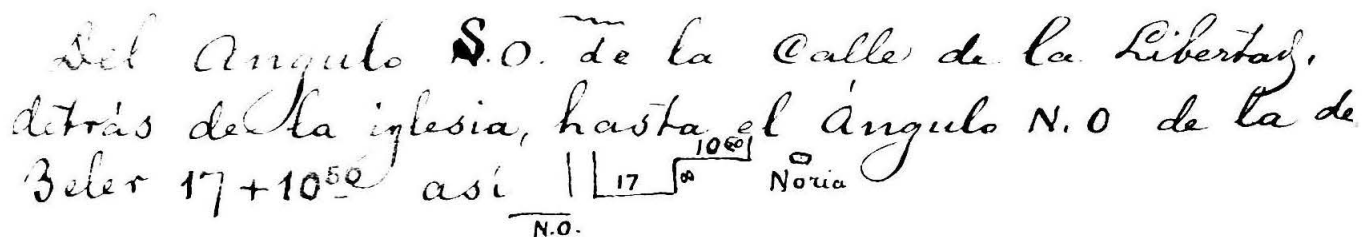 Del Angulo S.O. de la Calle de la Libertad,
detrás de la iglesia, hasta el Ángulo N.O de la de
Beler 17+10⁵⁰ así 17 8 10 Noria
N.O.